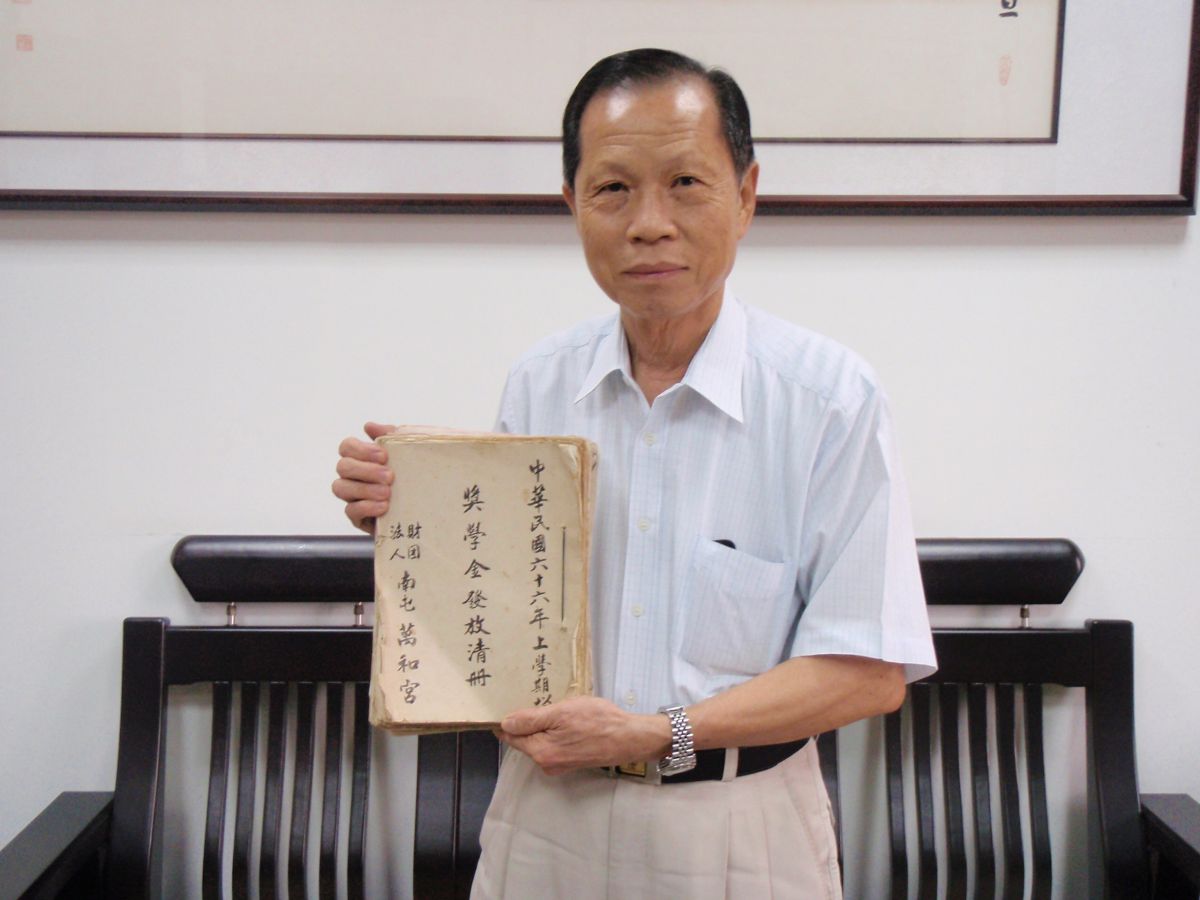 中華民國六十六年上學期
獎學金發放清冊
財团
法人
南屯萬和宮